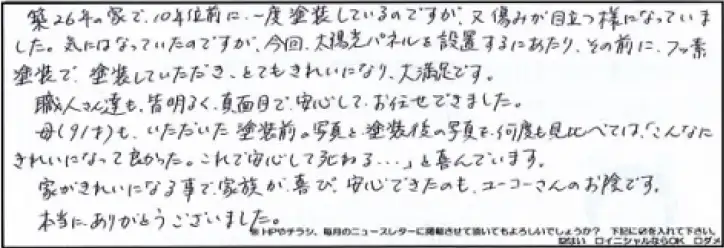 築26年の家で、10年位前に、一度塗装しているのですが、又傷みが目立つ様になっていま
した。気にはなっていたのですが、今回、太陽光パネルを設置するにあたり、その前に、フッ素
塗装で、塗装していただき、とてもきれいになり、大満足です。
職人さん達も、皆明るく、真面目で、安心して、お任せできました。
母(91才)も、いただいた塗装前の写真と、塗装後の写真を、何度も見比べては、「こんなに
きれいになって良かった。これで安心して死ねる・・・」と喜んでいます。
家がきれいになる事で、家族が、喜び、安心できたのも、ユーコーさんのお陰です。
本当にありがとうございました。
※HPやチラシ、毎月のニュースレターに掲載させて頂いてもよろしいでしょうか? 下記に☑を入れて下さい。
☑はい □イニシャルならOK □ダメ